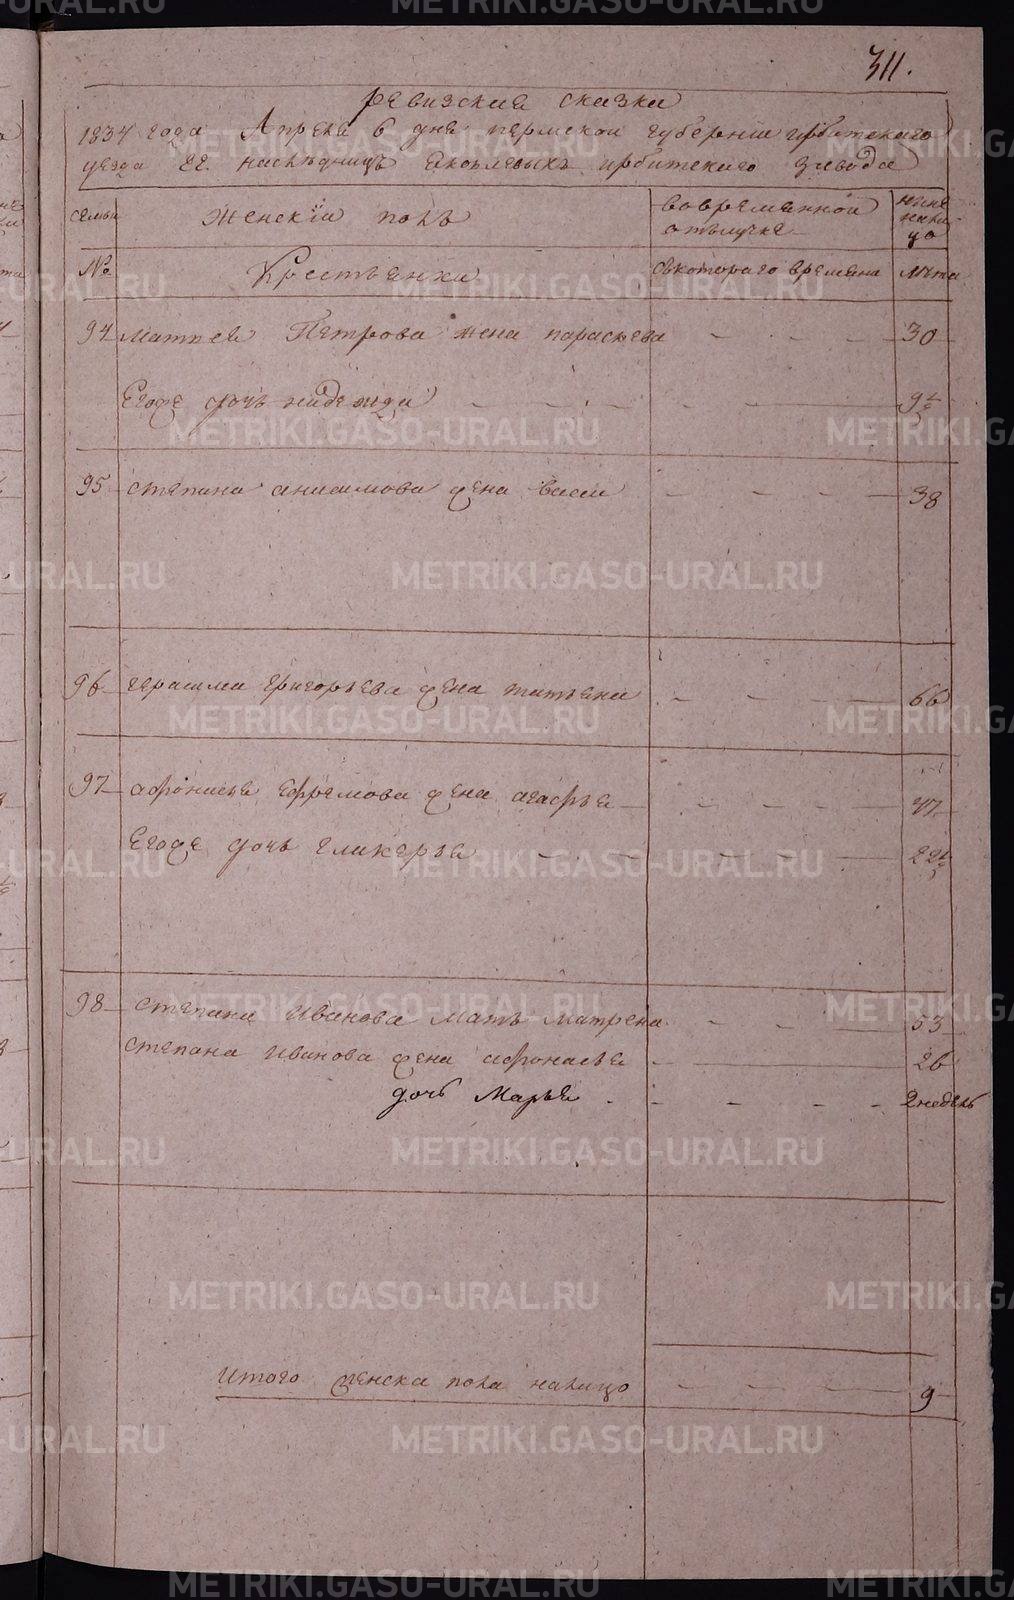 311.
ревизские сказки
1834 года Апреля 6 дня пермской губернии ирбитскаго
уезда гг. наследниц яковлевых ирбитскаго завода
семьи
Женскїй полъ
во временной отлучке
ныне налицо
№
Крестьянки
съ котораго времяни
лета
94 матвея Петрова жена парасковья - - - - 30
Егоже дочь надежда - - - - 9 1/2
95 степана анисимова жена - - - - 38
96 герасима григорьева жена татьяна - - - 66
97 афонасья ефремова жена агафья - - - - 47
Егоже дочь гликерья - - - - 22 1/2
98 степана Иванова мать матрена - - - 53
степана иванова жена афонасья - 26
дочь Марья - - - - 2 недель
Итого женска пола налицо - - - 9
METRIKI.GASO-URAL.RU